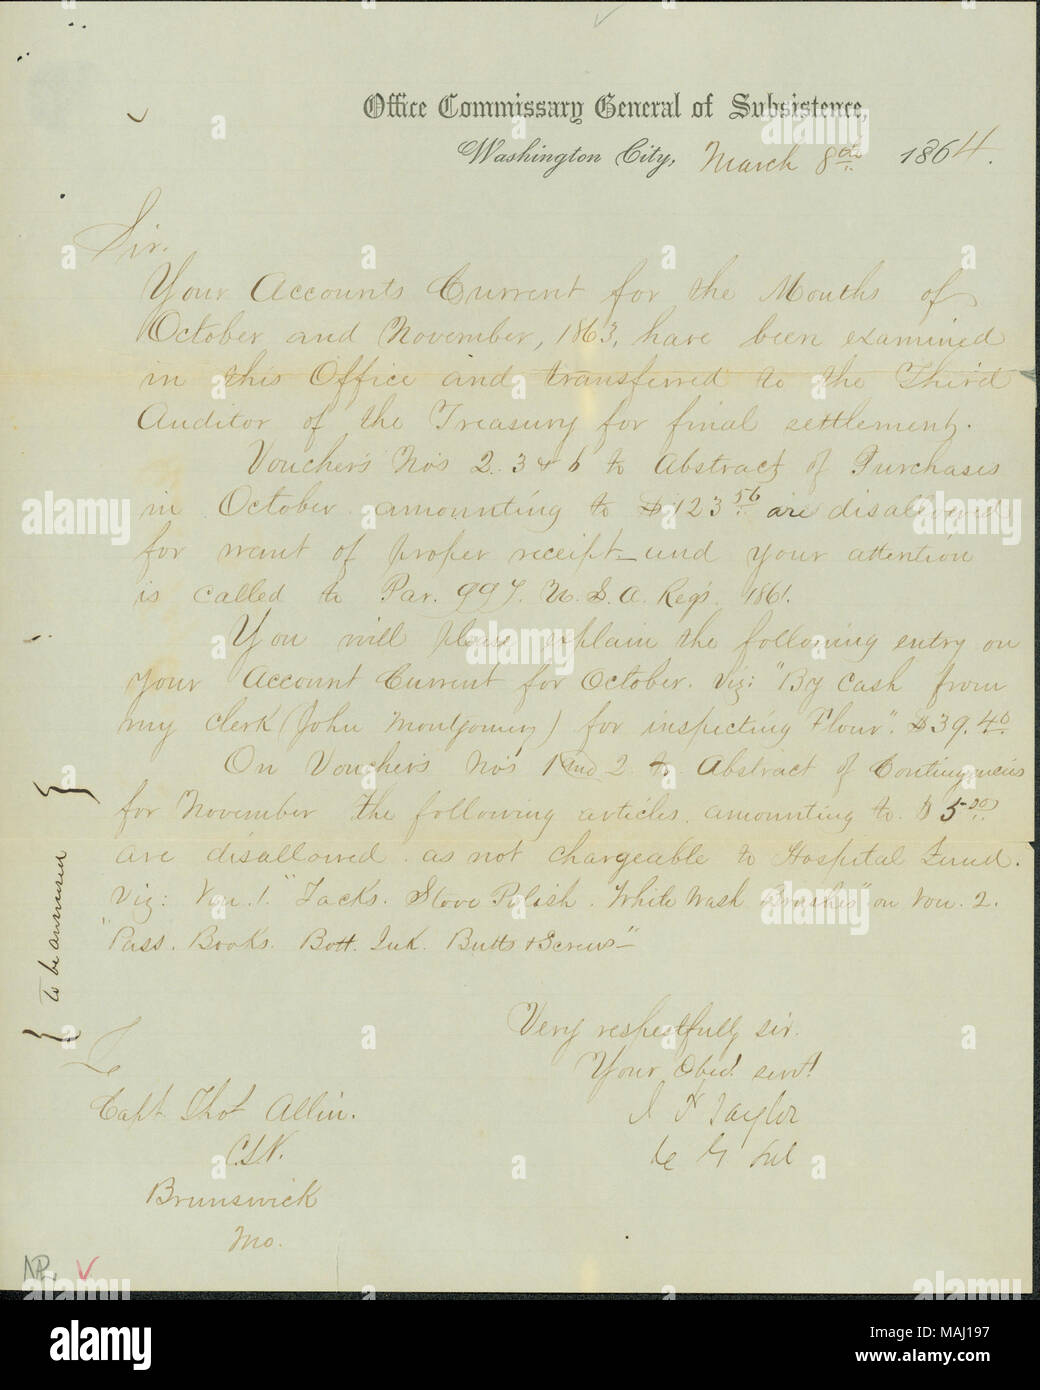 Office Commissary General of Subsistence,
Washington City, March 8th 1864.
Sir.
Your Accounts Current for the Months of
October and November, 1863, have been examined
in this Office and transferred to the Third
Auditor of the Treasury for final settlement.
Vouchers Nos 2. 3 & 6 to Abstract of Purchases
in October amounting to $123 56 are disallowed
for want of proper receipt and your attention
is called to Par. 997. U. S. A. Regs. 1861.
You will please explain the following entry on
your Account Current for October. Viz: "By Cash from
my clerk (John Montgomery) for inspecting Flour". $39.40
On Vouchers Nos 1 and 2 to Abstract of Contingencies
for November the following articles amounting to $5 00
are disallowed as not chargeable to Hospital Fund.
Viz: Vou. 1. "Tacks. Stove Polish. White Wash Brushes" on Vou. 2.
"Pass. Books. Bott. Ink. Butts & Screws"
{ to be answered }
Very respectfully sir.
Your Obed. servt.
To
Capt. Thos. Allin.
Taylor
C G Sub
Brunswick
Mo.
alamy
Image ID: MAJ197
www.alamy.com